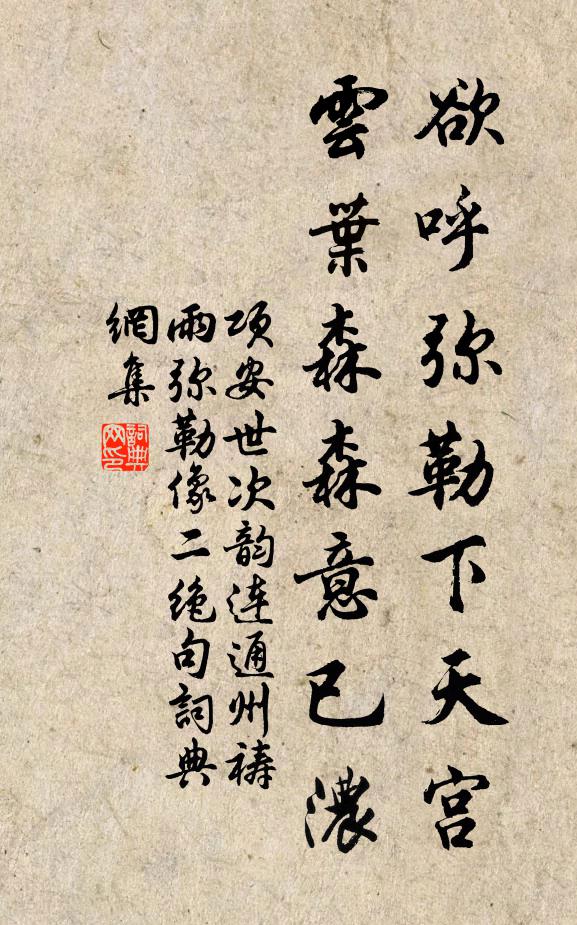 欲呼弥勒下天宫
雲葉森森意已濃
项安世次韵连通州祷
雨弥勒像二绝句詞典
網集
詞典
网印